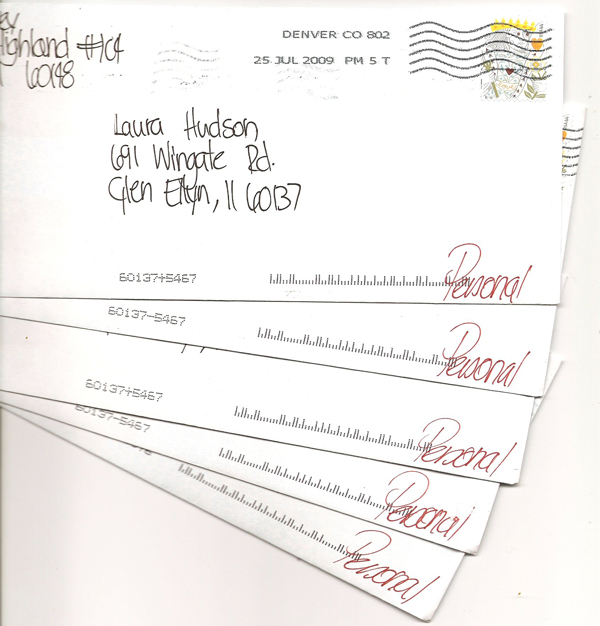 Highland #104
60148
DENVER CO 802
25 JUL 2009 PM 5 T
Laura Hudson
691 Wingate Rd.
Glen Ellyn, Il 60137
60137+5467
Personal
60137-5467
Personal
60137+5467
Personal
60137-5467
Personal
Personal